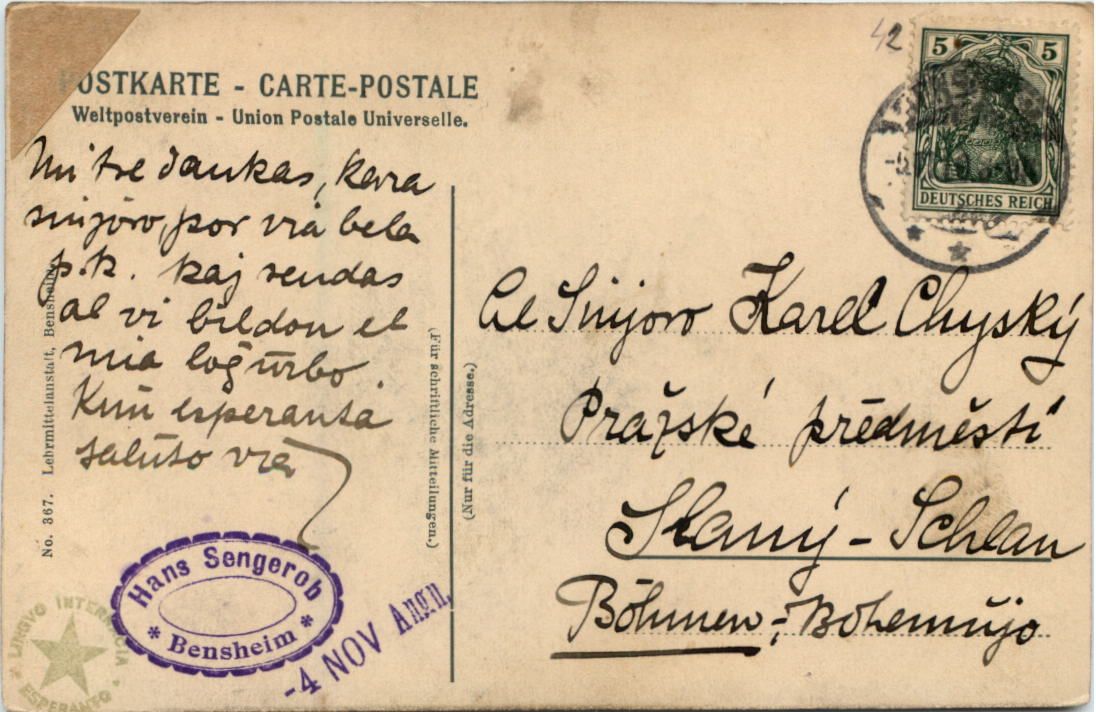 POSTKARTE - CARTE-POSTALE
Weltpostverein - Union Postale Universelle.
42
5 5
DEUTSCHES REICH
Mi tre dankas, kara
sinjoro, por via bela
p.k. kaj sendas
al vi bildon el
mia loĝurbo.
Kun esperanta
saluto via
No. 367. Lehrmittelanstalt, Bensheim
(Für schriftliche Mitteilungen.)
(Nur für die Adresse.)
Al Sinjoro Karel Chyský
Pražské předměstí
Slaný - Schlan
Böhmen - Bohemujo
Hans Sengerob
* Bensheim *
-4 NOV Angn.
LINGVO INTERNACIA
ESPERANTO